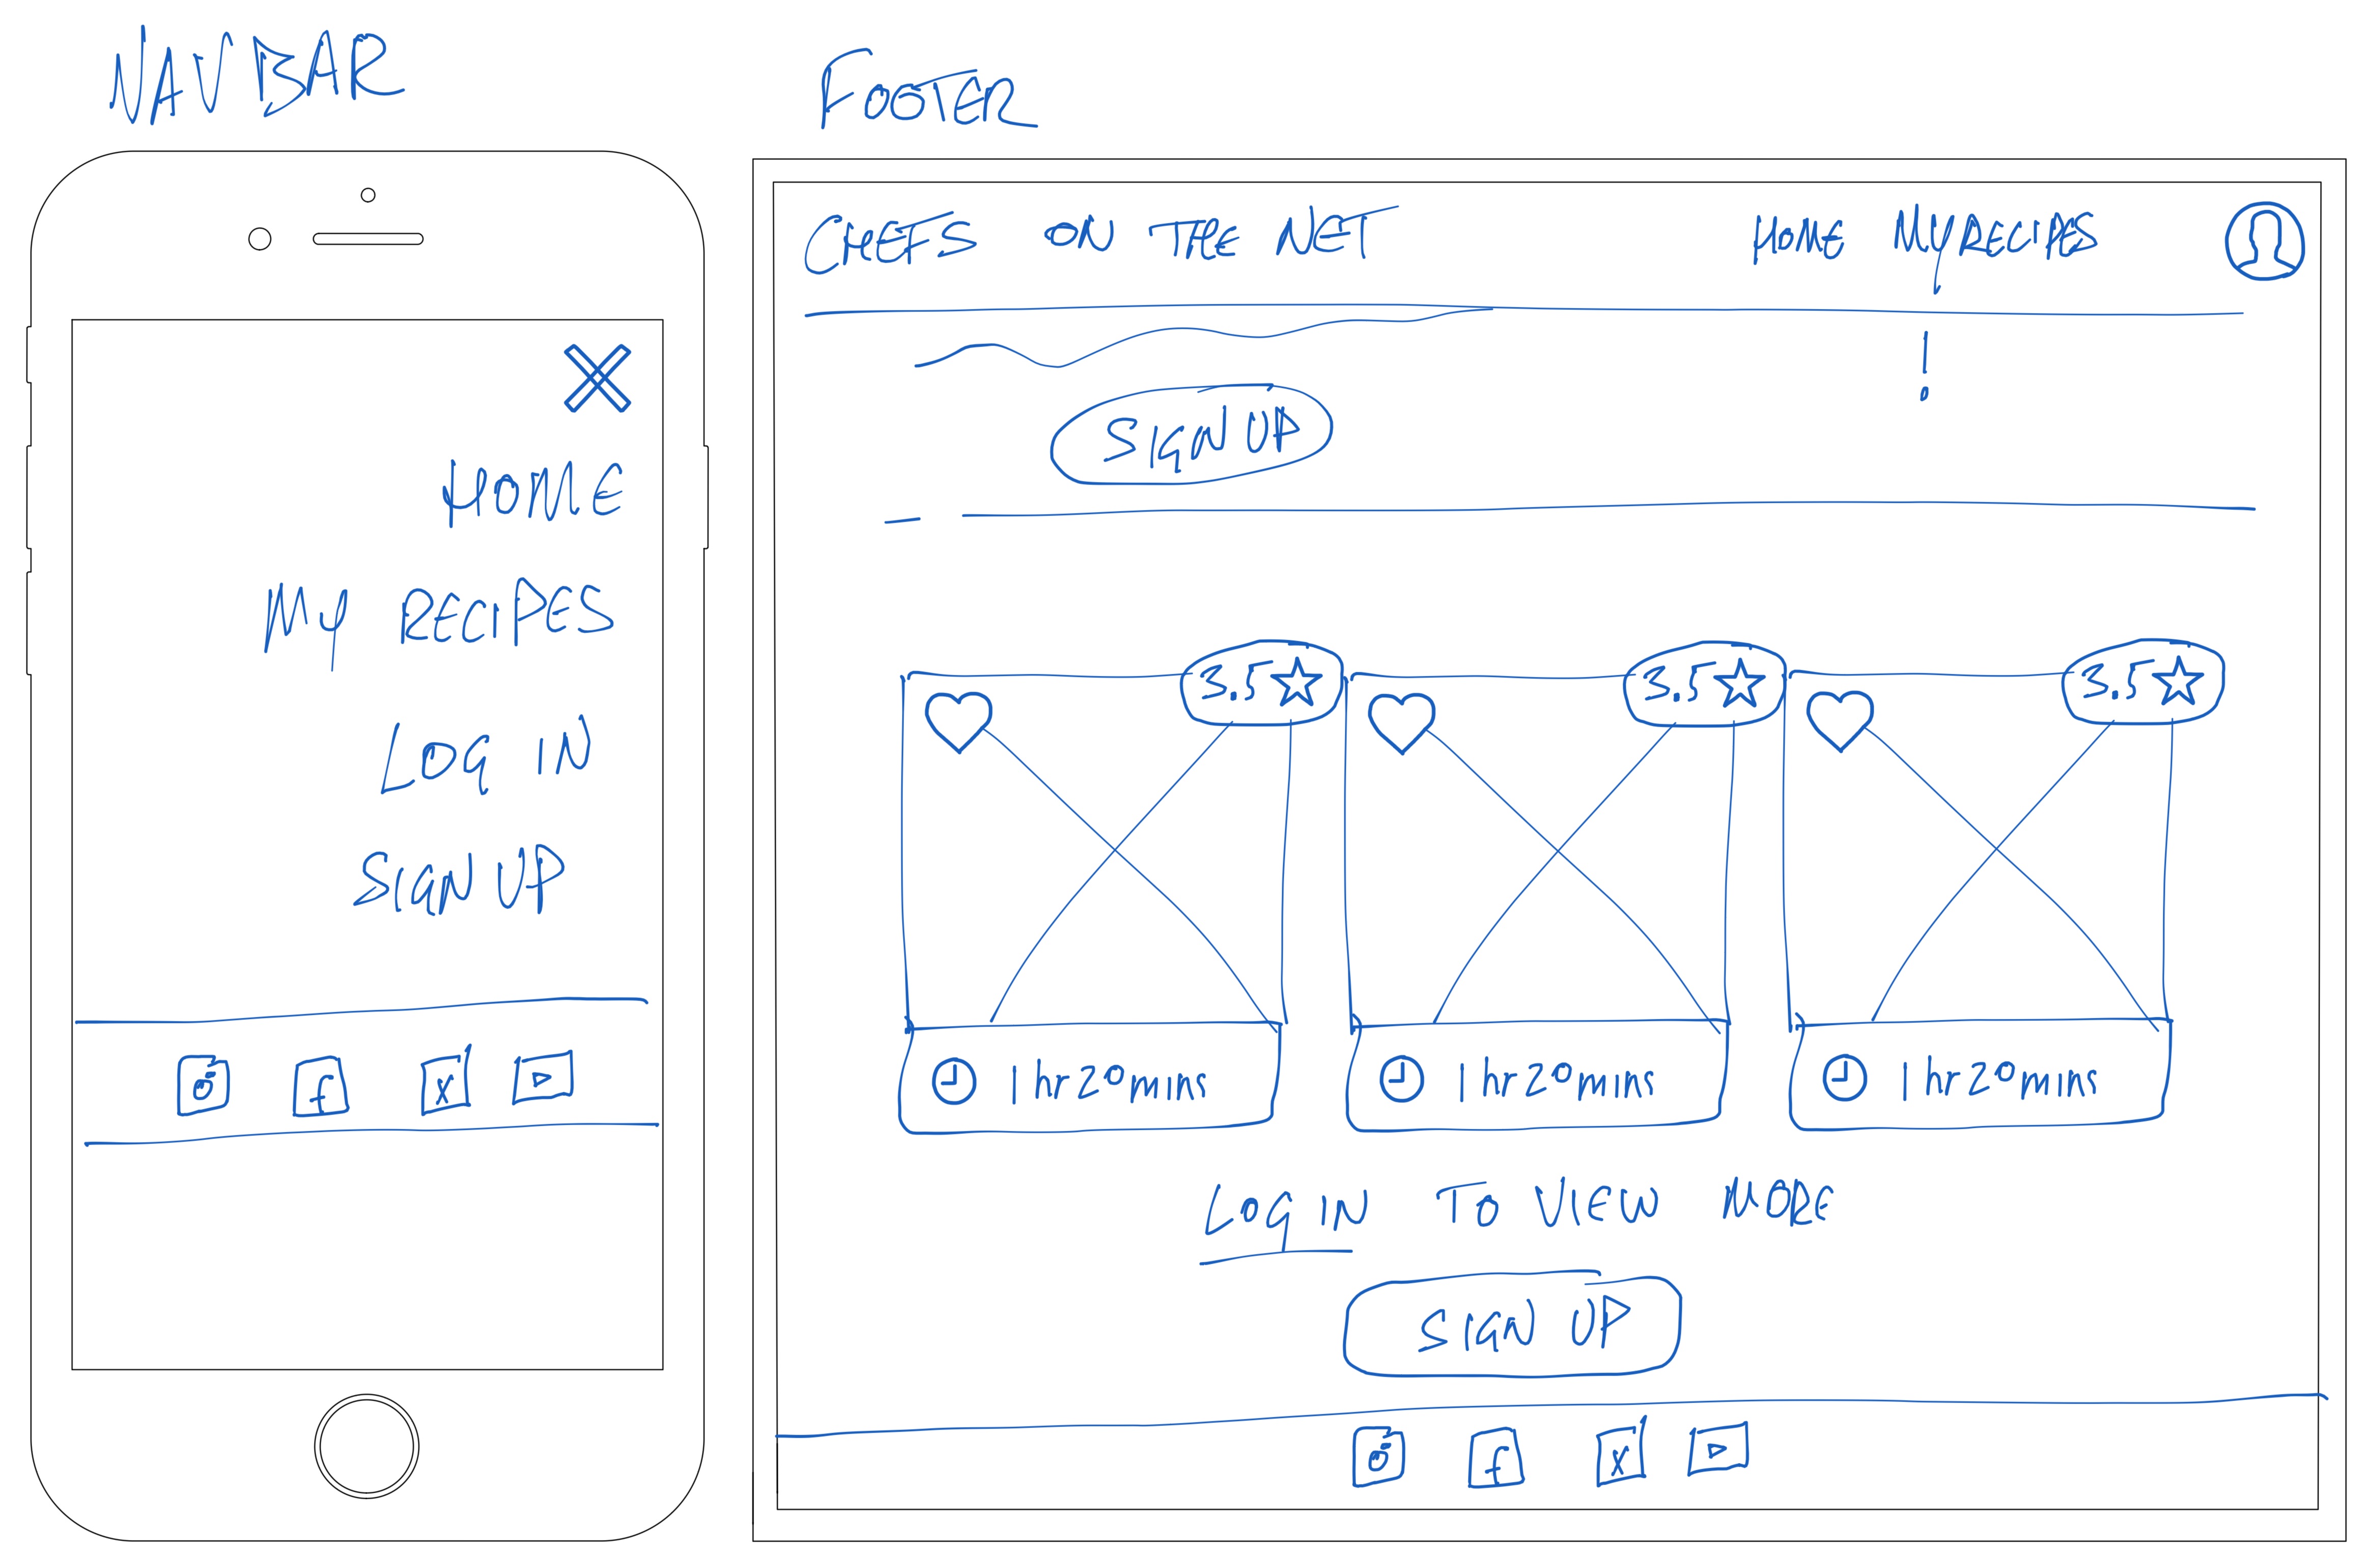 NAV BAR
HOME
MY RECIPES
LOG IN
SIGN UP
f X
FOOTER
CHEFS ON THE NET HOME MY RECIPES
!
SIGN UP
3.5 3.5 3.5
1 hr 20 mins 1 hr 20 mins 1 hr 20 mins
LOG IN TO VIEW MORE
SIGN UP
f X